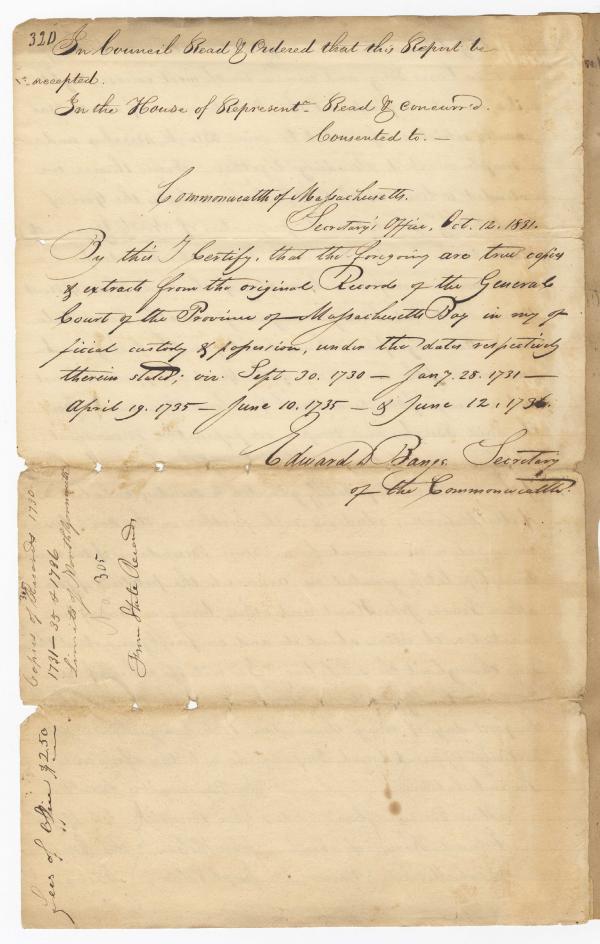 320
In Council Read & Ordered that this Report be
accepted.
In the House of Represent. Read & Concurr'd.
Consented to. —
Commonwealth of Massachusetts.
Secretary's Office, Oct. 12. 1831.
By this I Certify, that the foregoing are true copies
& extracts from the original Records of the General
Court of the Province of Massachusetts Bay in my of
ficial custody & possession, under the dates respectively
therein stated; viz. Sept. 30. 1730 — Jany. 28. 1731 —
April 19. 1735 — June 10. 1735 — & June 12, 1736.
Edward D Bangs Secretary
of the Commonwealth.
Copies of Records 1730
1731 — 35 & 1736
Limits of
305
From State Records
Fees of Office $2.50